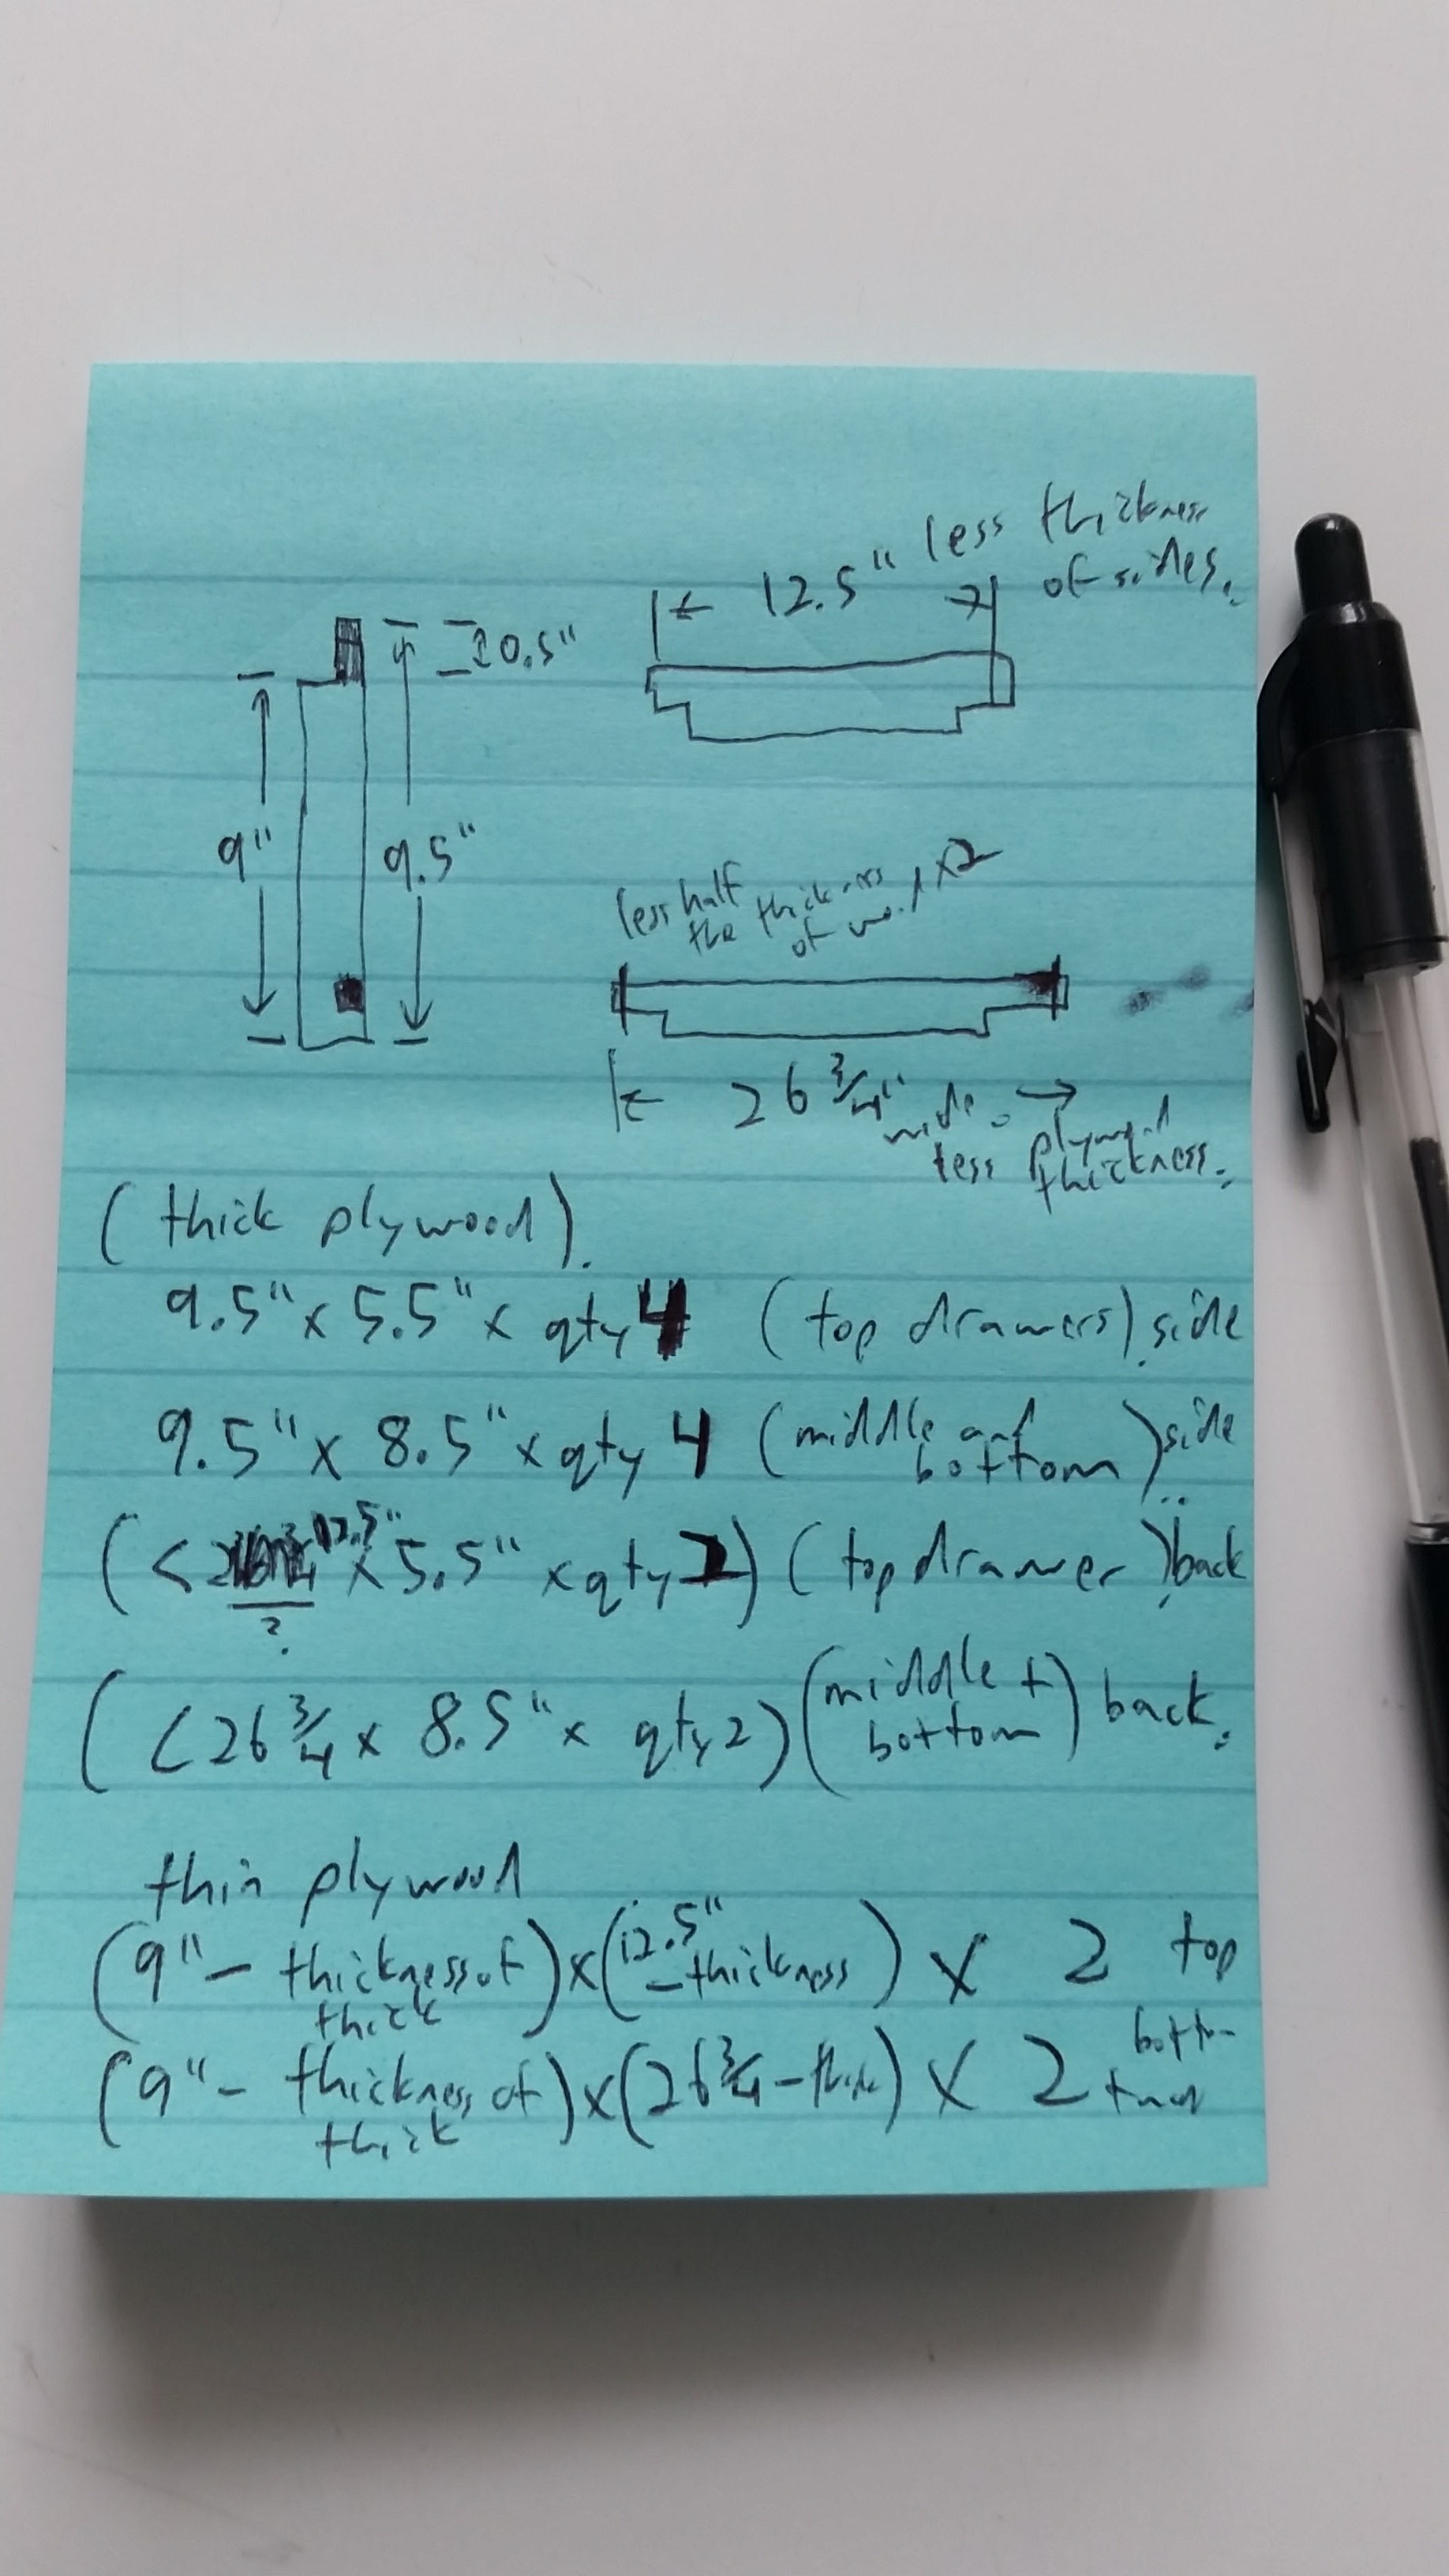 12.5" less thickness
of sides.
9"
9.5"
0.5"
less half thickness x2
the of wood
26 3/4" wide →
less plywood
thickness.
(thick plywood).
9.5" x 5.5" x qty 4 (top drawers) side
9.5" x 8.5" x qty 4 (middle and bottom) side
(< 12.5" x 5.5" x qty 2) (top drawer) back
2
(< 26 3/4 x 8.5" x qty 2) (middle + bottom) back.
thin plywood
(9" - thickness of thick) x (12.5" - thickness) x 2 top
(9" - thickness of thick) x (26 3/4 - thick) x 2